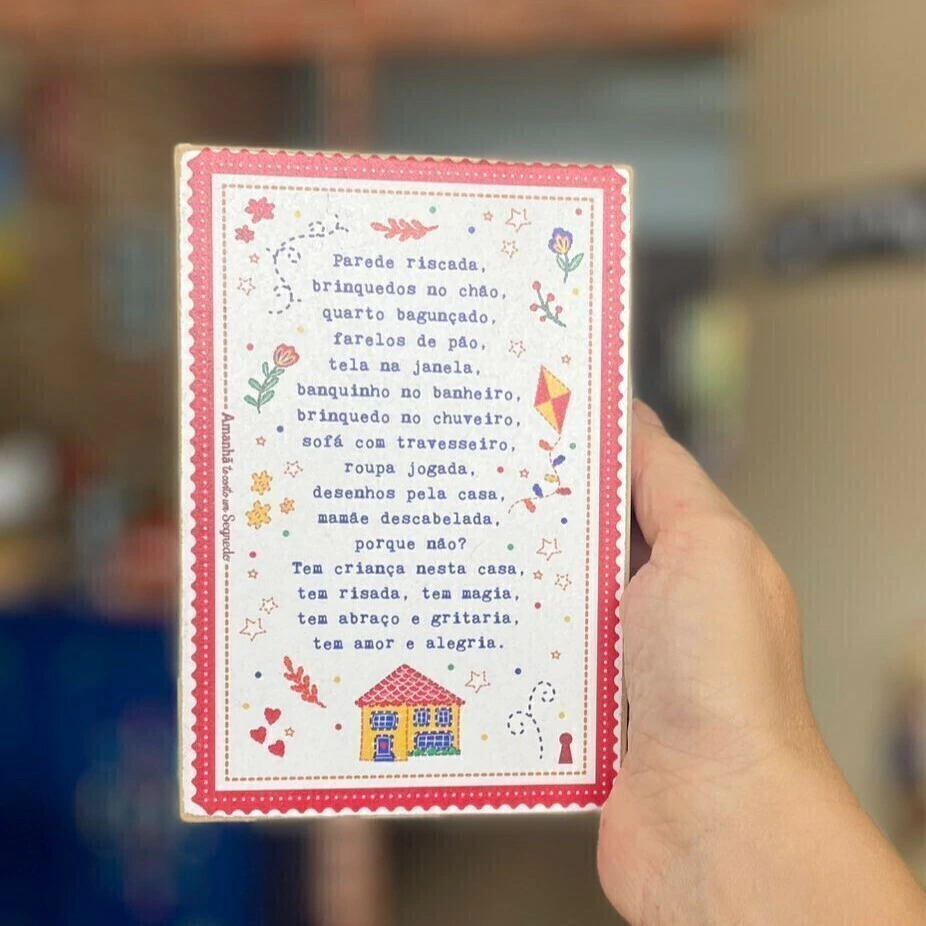 Parede riscada,
brinquedos no chão,
quarto bagunçado,
farelos de pão,
tela na janela,
banquinho no banheiro,
brinquedo no chuveiro,
sofá com travesseiro,
roupa jogada,
desenhos pela casa,
mamãe descabelada,
porque não?
Tem criança nesta casa,
tem risada, tem magia,
tem abraço e gritaria,
tem amor e alegria.
Amanhã te conto um Segredo